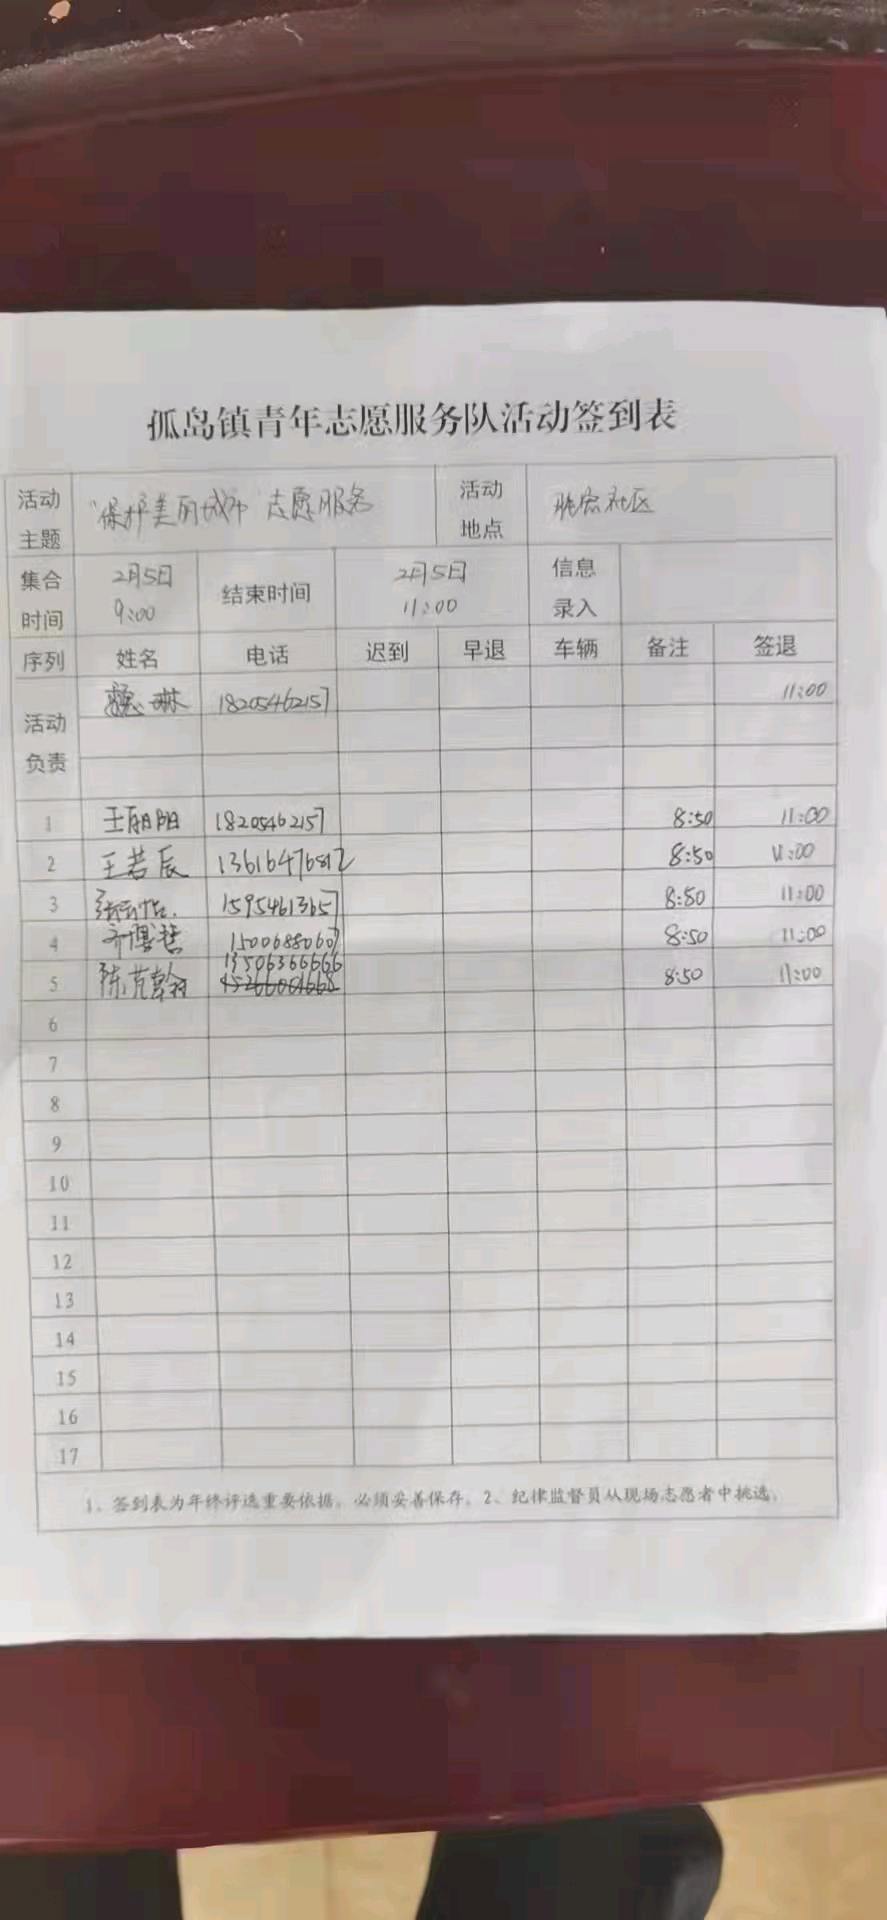 孤岛镇青年志愿服务队活动签到表
活动主题 "保护美丽城市"志愿服务 活动地点 社区
集合时间 2月5日 9:00 结束时间 2月5日 11:00 信息录入
序列 姓名 电话 迟到 早退 车辆 备注 签退
活动负责 魏琳 18205462157 11:00
1 王朝阳 18205462157 8:50 11:00
2 王若辰 13616476812 8:50 11:00
3 15954613657 8:50 11:00
4 齐博慧 15006880607 8:50 11:00
5 陈范翰 13506366666 8:50 11:00
6
7
8
9
10
11
12
13
14
15
16
17
1、签到表为年终评选重要依据，必须妥善保存。2、纪律监督员从现场志愿者中挑选。